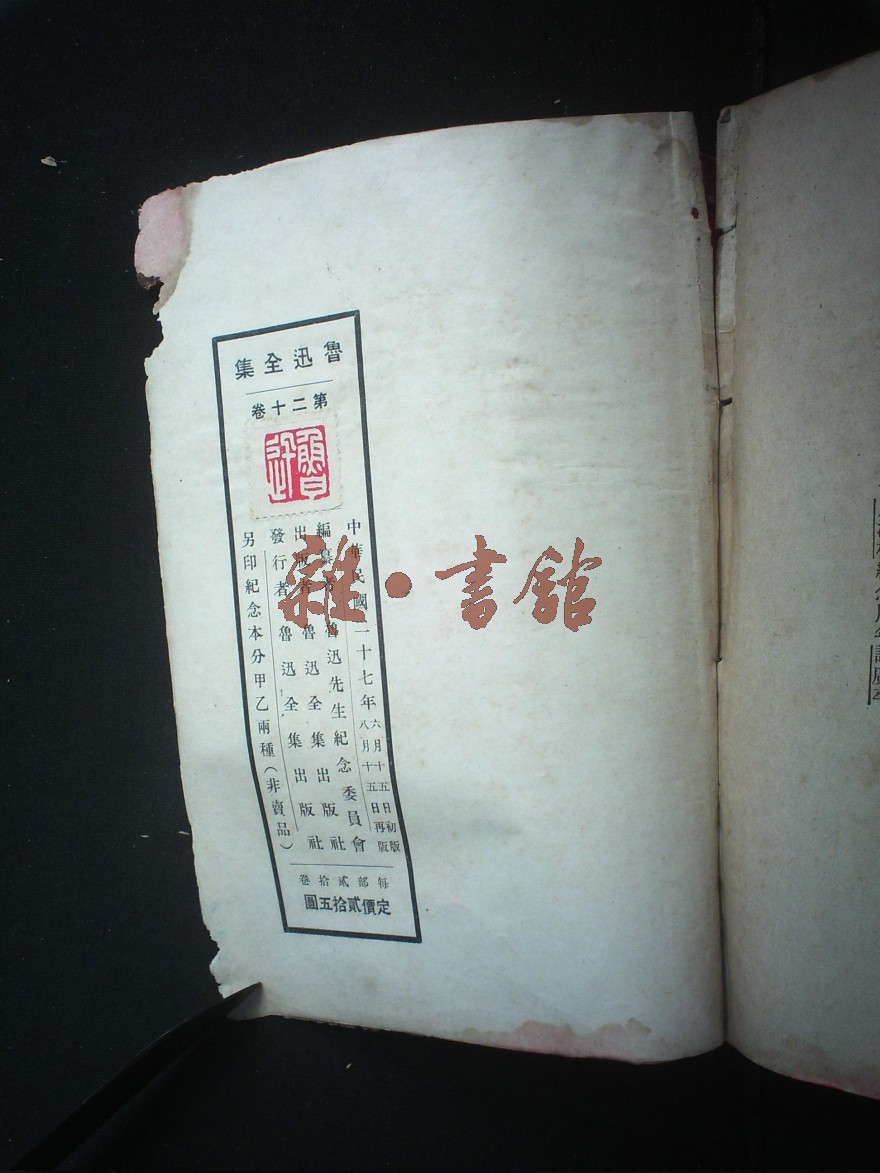 魯迅全集
第二十卷
魯迅
中華民國二十七年六月十五日初版
八月十五日再版
編纂者魯迅先生紀念委員會
出版者魯迅全集出版社
發行者魯迅全集出版社
另印紀念本分甲乙兩種（非賣品）
每部貳拾卷
定價貳拾五圓
雜·書館